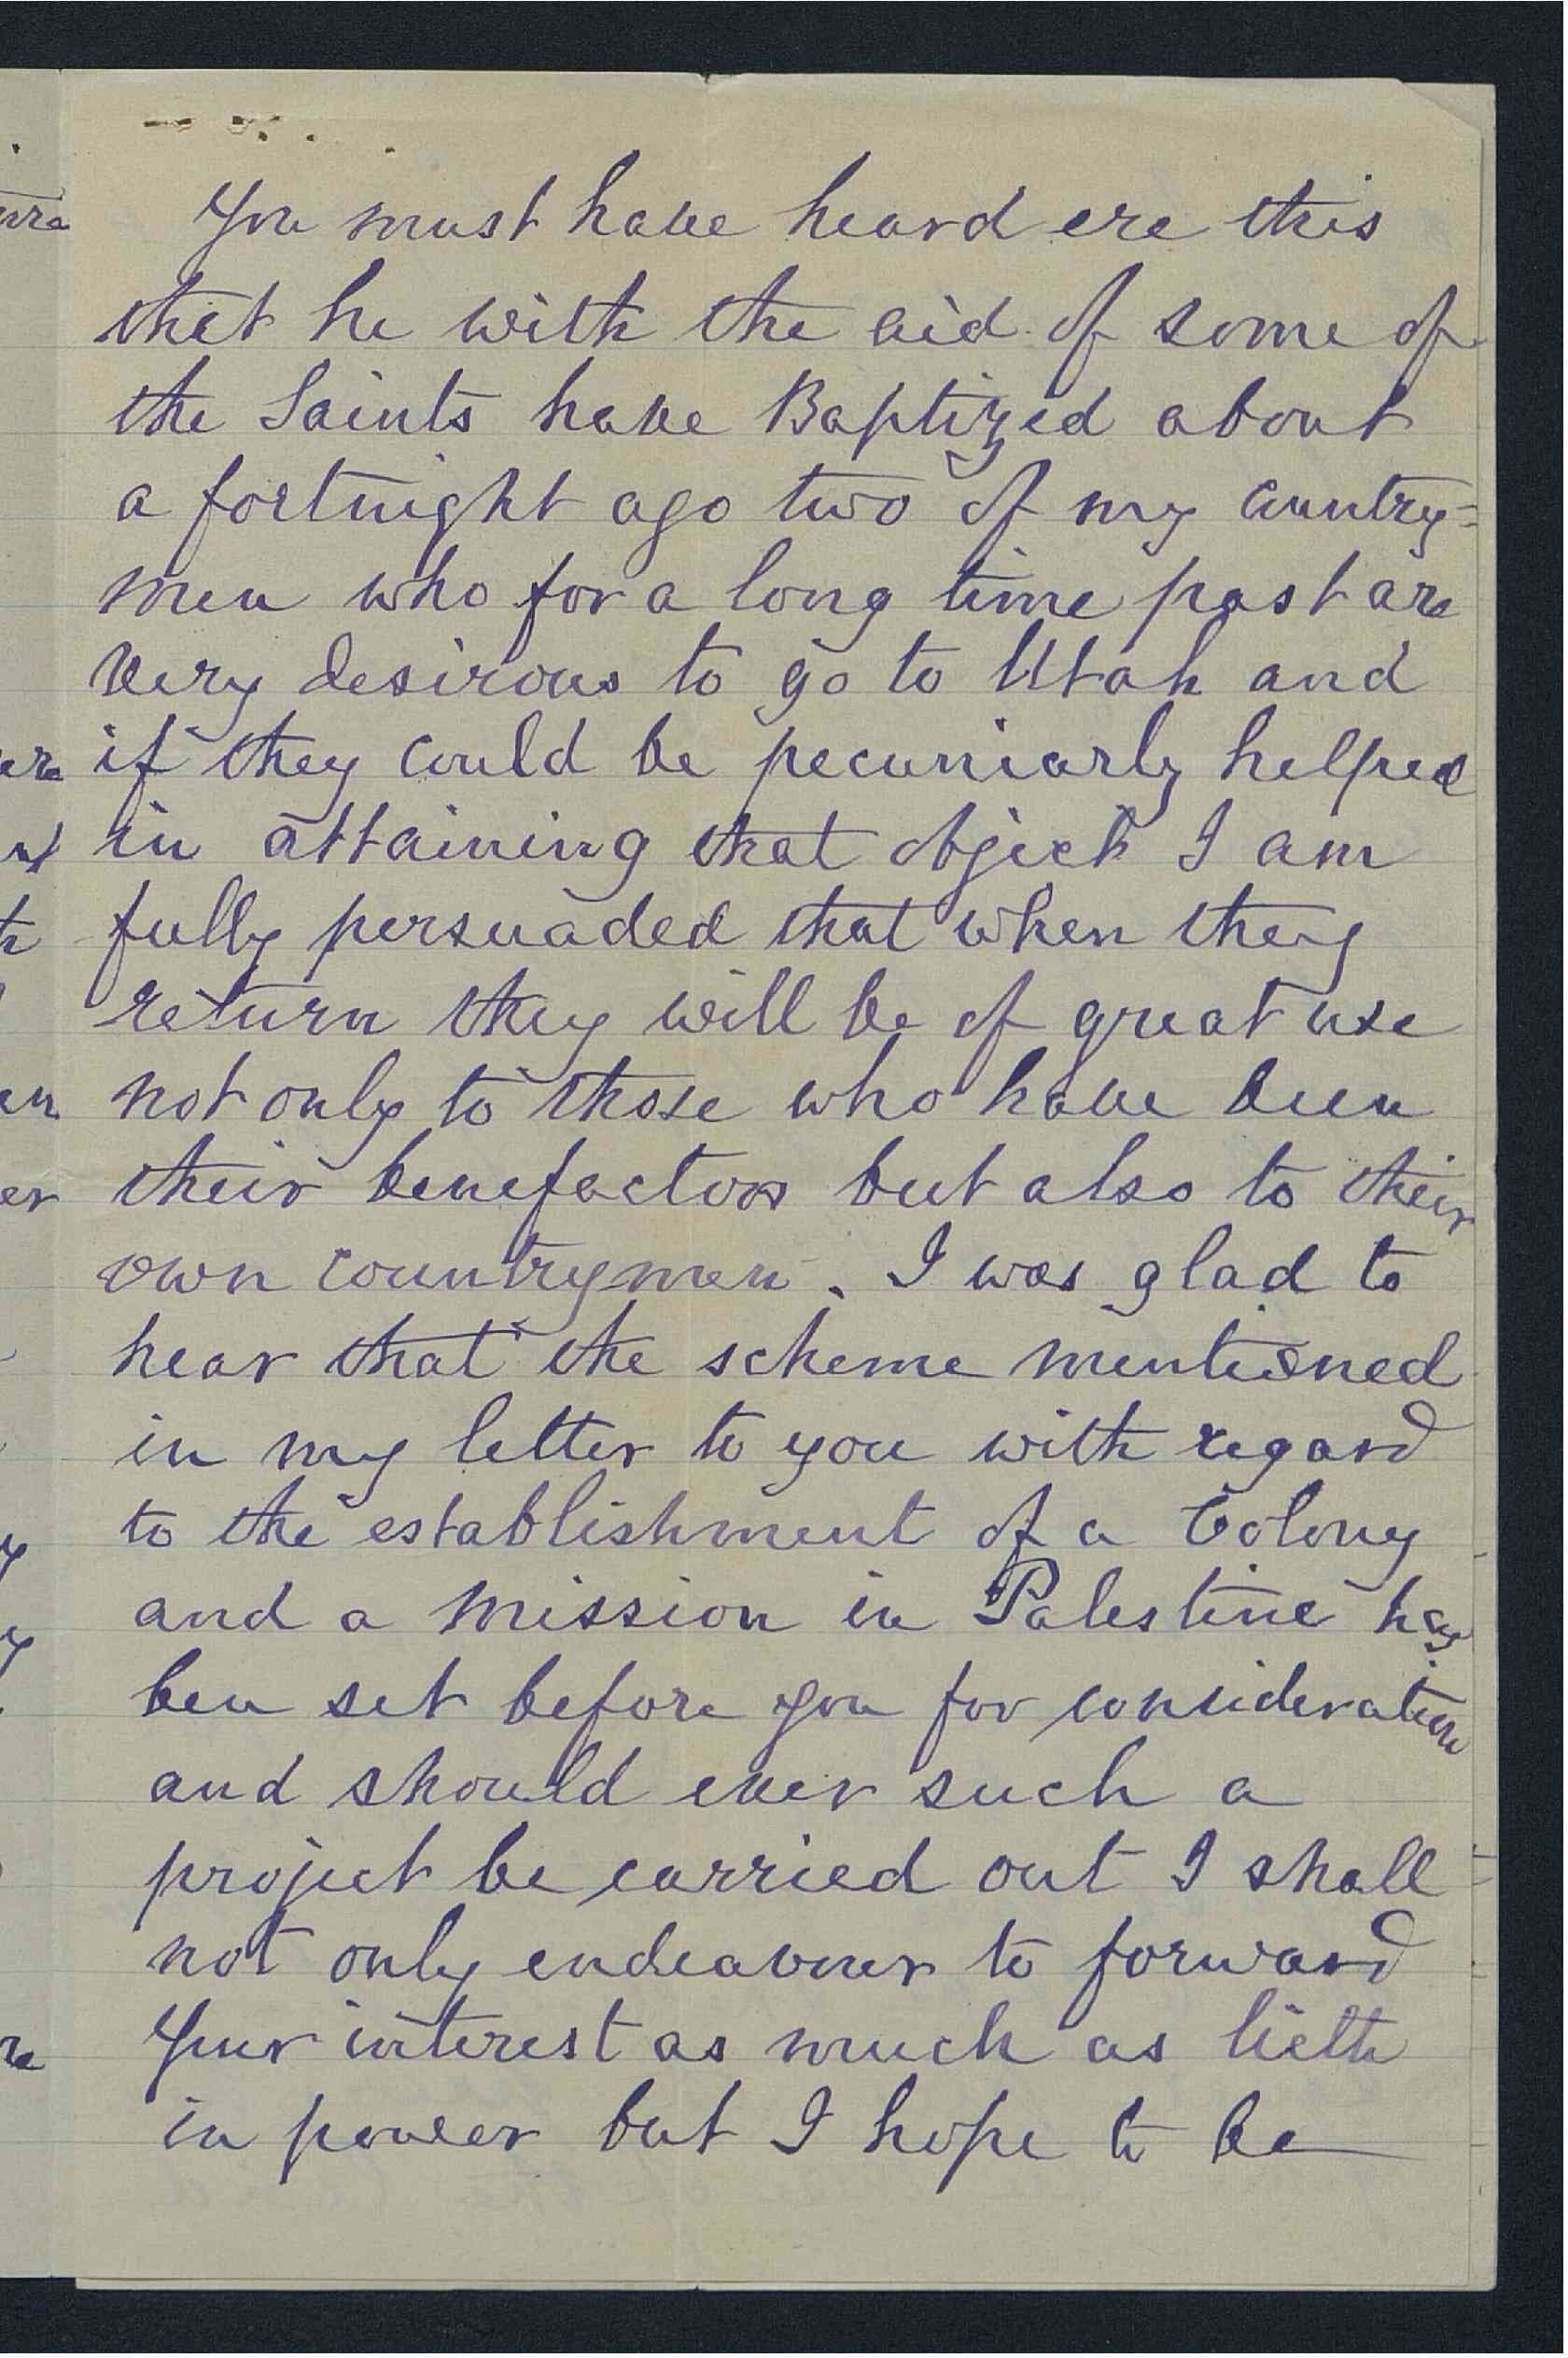 You must have heard ere this
that he with the aid of some of
the Saints have Baptized about
a fortnight ago two of my country=
men who for a long time past are
very desirous to go to Utah and
if they could be pecuniarly helped
in attaining that object I am
fully persuaded that when they
return they will be of great use
not only to those who have been
their benefactors but also to their
own countrymen. I was glad to
hear that the scheme mentioned
in my letter to you with regard
to the establishment of a Colony
and a mission in Palestine has
been set before you for consideration
and should ever such a
project be carried out I shall
not only endeavour to forward
your interest as much as lieth
in power but I hope to be